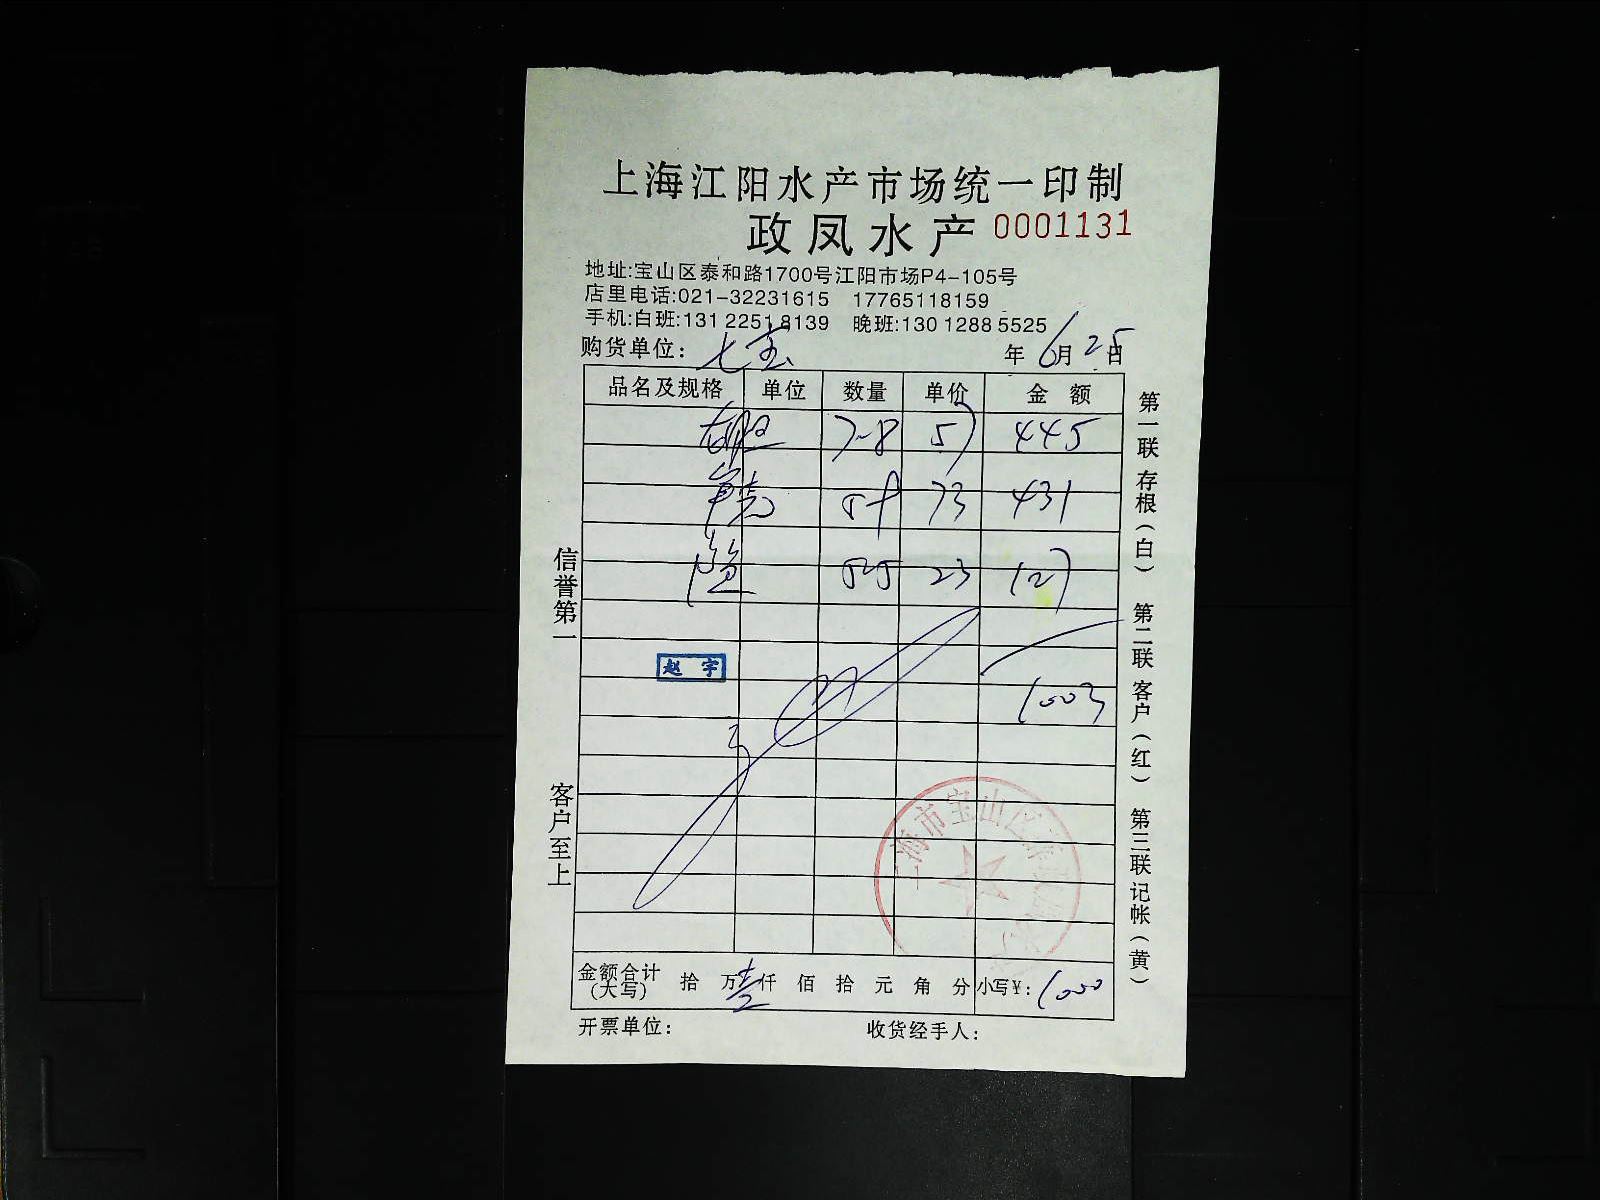 上海江阳水产市场统一印制
政凤水产 0001131
地址:宝山区泰和路1700号江阳市场P4-105号
店里电话:021-32231615 17765118159
手机:白班:131 2251 8139 晚班:130 1288 5525
购货单位: 七宝 年 6月25日
品名及规格 单位 数量 单价 金额
7-8 57 445
59 73 431
55 23 127
赵宇
1003
上海市宝山区
金额合计(大写) 拾 万 壹仟 佰 拾 元 角 分 小写¥: 1000
开票单位: 收货经手人:
信誉第一
客户至上
第一联存根(白) 第二联客户(红) 第三联记帐(黄)